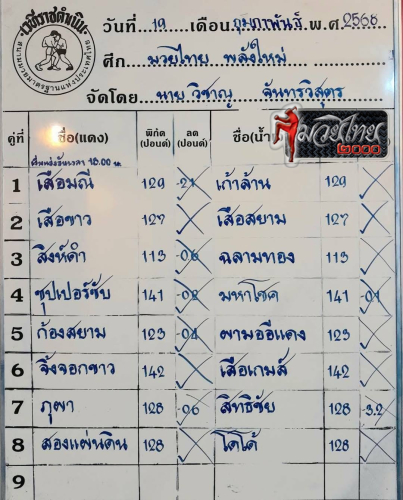 เวทีราชดำเนิน
สนามมวยมาตรฐานแห่งประเทศไทย
วันที่ 19 เดือน กุมภาพันธ์ พ.ศ. 2568
ศึก มวยไทย พลังใหม่
จัดโดย นาย วิชาญ จันทรวิสูตร
มวยไทย
๒๐๐๐
คู่ที่ ชื่อ(แดง) พิกัด (ปอนด์) ลด (ปอนด์) ชื่อ(น้ำ
18.00 น.
1 เสือมณี 129 -21 เก้าล้าน 129
2 เสือขาว 127 เสือสยาม 127
3 สิงห์ดำ 113 -06 ฉลามทอง 113
4 ซุปเปอร์ชับ 141 -02 มหาโชค 141 -01
5 ก้องสยาม 123 -04 ผามออีแดง 123
6 จิ้งจอกขาว 142 เสือเกมส์ 142
7 ภูผา 128 -06 สิทธิชัย 128 -3.2
8 สองแผ่นดิน 128 โคโค้ 128
9